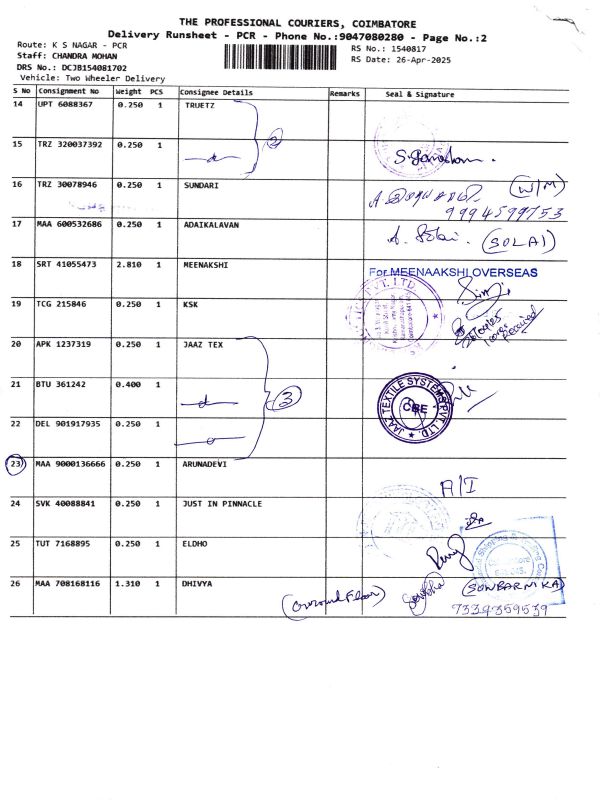 THE PROFESSIONAL COURIERS, COIMBATORE
Delivery Runsheet - PCR - Phone No.:9047080280 - Page No.:2
Route: K S NAGAR - PCR
RS No.: 1540817
Staff: CHANDRA MOHAN
RS Date: 26-Apr-2025
DRS No.: DCJB154081702
Vehicle: Two Wheeler Delivery
S No Consignment No Weight PCS Consignee Details Remarks Seal & Signature
14 UPT 6088367 0.250 1 TRUETZ
2
15 TRZ 320037392 0.250 1
16 TRZ 30078946 0.250 1 SUNDARI
(W/M)
9994599753
17 MAA 600532686 0.250 1 ADAIKALAVAN
(SOLAI)
18 SRT 41055473 2.810 1 MEENAKSHI
For MEENAAKSHI OVERSEAS
19 TCG 215846 0.250 1 KSK
20 APK 1237319 0.250 1 JAAZ TEX
21 BTU 361242 0.400 1
3
JAAZ TEXTILE SYSTEMS PVT. LTD.
CBE
22 DEL 901917935 0.250 1
23 MAA 9000136666 0.250 1 ARUNADEVI
A/I
24 SVK 40088841 0.250 1 JUST IN PINNACLE
25 TUT 7168895 0.250 1 ELDHO
26 MAA 708168116 1.310 1 DHIVYA
(Ground Floor)
(SUNBARNIKA)
7339359539